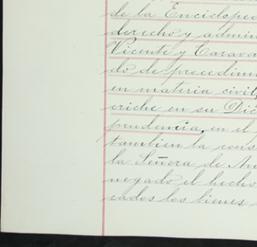 de la Enciclope
derecho y admin
Vicente y Carava
do de procedimi
en materia civil,
criche en su Dic
prudencia, en el
tambien la cons
la Señora de An
negado el hecho
cados los bienes